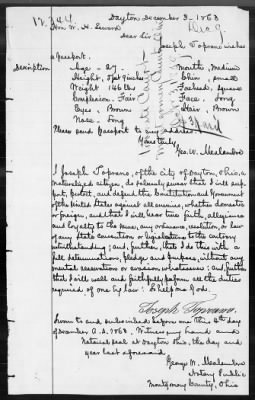 12,344
Dayton December 3 - 1863
Hon W. H. Seward
Dear Sir
Joseph Toprano wishes
a passport.
Description Age - 27. Mouth, Medium
Height, 5 feet 9 inches Chin, small
Weight 146 lbs Forhead, square
Complexion - Fair Face - Long
Eyes - Brown Hair, Brown
Nose - Long
Please send passport to my address
Yours truly,
Geo. W. Malambre
I Joseph Toprano, of the City of Dayton, Ohio, a
naturalized citizen, do solemnly swear that I will sup-
port, protect, and defend the Constitution and government
of the United States against all enemies, whether domestic
or foreign, and that I will bear true faith, allegiance
and loyalty to the same, any ordinance, resolution, or law
of any State Convention or Legislature to the contrary
notwithstanding; and, further, that I do this with a
full determination, pledge and purpose, without any
mental reservation or evasion whatsoever; and further
that I will well and faithfully perform all the duties
required of me by law: So help me God.
Joseph Toprano.
Sworn to and subscribed before me this 4th day
of December A.D. 1863. Witness my hand and
Notarial seal at Dayton Ohio, the day and
year last aforesaid
George W. Malambre
Notary Public
Montgomery County, Ohio